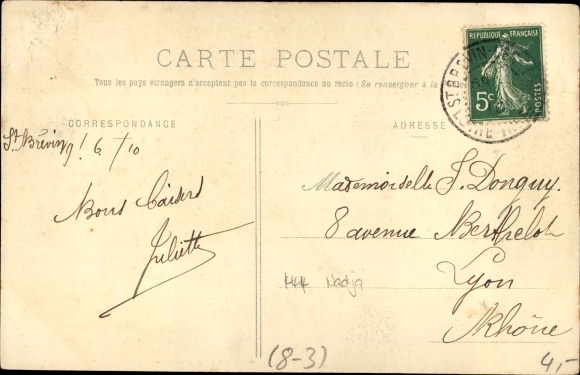 CARTE POSTALE
Tous les pays étrangers n'acceptent pas la correspondance au recto (Se renseigner à la
CORRESPONDANCE
St Brévin 9! 6/10
Bons baisers
Juliette
ADRESSE
REPUBLIQUE FRANÇAISE
5c
POSTES
ST BREVIN
Mademoiselle J. Donguy
8 avenue Berthelot
Lyon
Rhône
Nadja
(8-3)
4,-